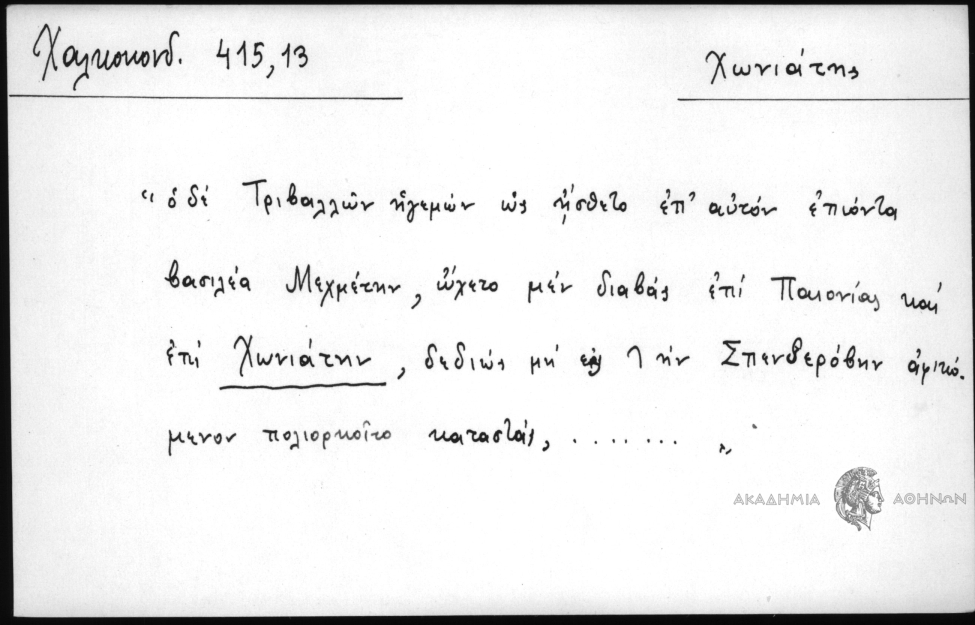 Χαλκοκονδ. 415,13
Χωνιάτης
"ὁ δέ Τριβαλλῶν ἡγεμών ὡς ᾔσθετο ἐπ' αὐτόν ἐπιόντα
βασιλέα Μεχμέτην, ᾤχετο μέν διαβάς ἐπί Παιονίας καί
ἐπί Χωνιάτην, δεδιώς μή ἐς τήν Σπενδερόβην ἀφικό-
μενον πολιορκοῖτο καταστάς, ........ "
ΑΚΑΔΗΜΙΑ ΑΘΗΝΩΝ